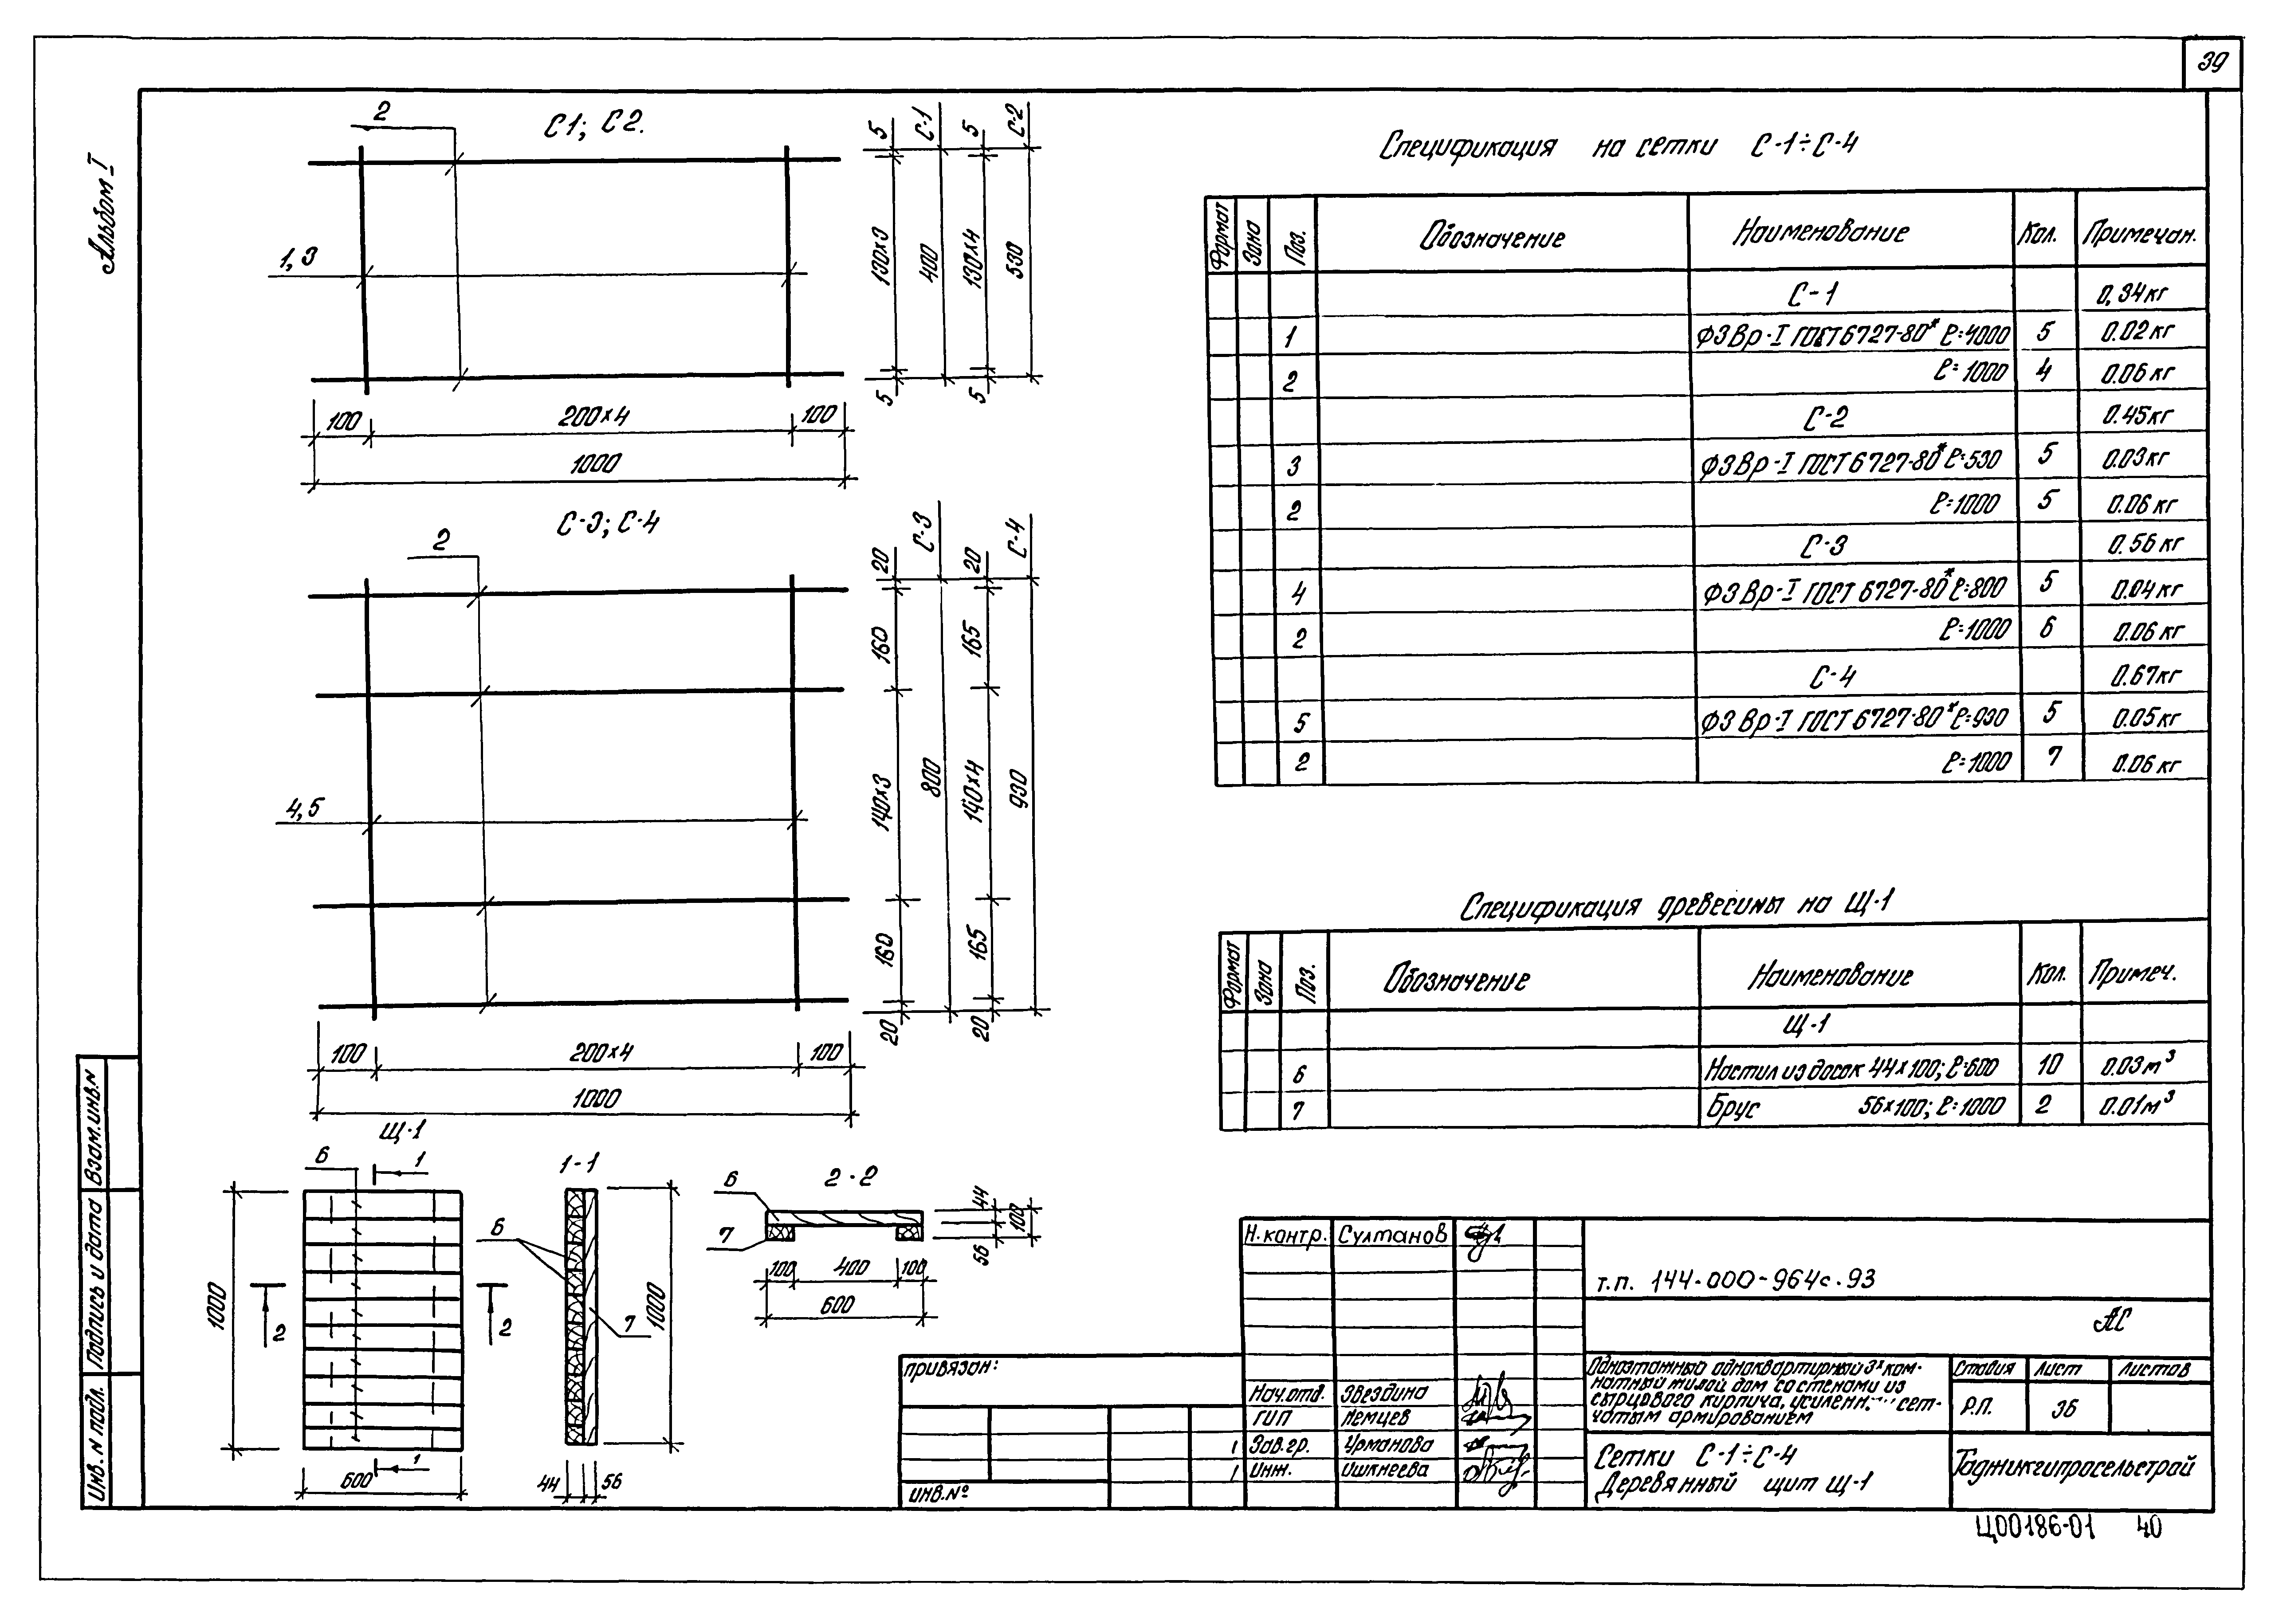 39
Альбом I
С1; С2.
2
1,3
100
200×4
100
1000
5
130×3
5
С-1
400
5
130×4
5
С-2
530
С-3; С-4
2
4,5
100
200×4
100
1000
20
160
140×3
160
20
С-3
800
20
165
140×4
165
20
С-4
930
Щ-1
6
1
1000
2
2
1
600
1-1
6
7
1000
44
56
2-2
6
7
44
56
100
100
400
100
600
Спецификация на сетки С-1÷С-4
Формат Зона Поз. Обозначение Наименование Кол. Примечан.
С-1 0,34кг
1 Ф3Вр-I ГОСТ 6727-80* ℓ=4000 5 0.02кг
2 ℓ=1000 4 0.06кг
С-2 0.45кг
3 Ф3Вр-I ГОСТ 6727-80* ℓ=530 5 0.03кг
2 ℓ=1000 5 0.06кг
С-3 0.56кг
4 Ф3Вр-I ГОСТ 6727-80* ℓ=800 5 0.04кг
2 ℓ=1000 6 0.06кг
С-4 0.67кг
5 Ф3Вр-I ГОСТ 6727-80* ℓ=930 5 0.05кг
2 ℓ=1000 7 0.06кг
Спецификация древесины на Щ-1
Формат Зона Поз. Обозначение Наименование Кол. Примеч.
Щ-1
6 Настил из досок 44×100; ℓ=600 10 0.03м³
7 Брус 56×100; ℓ=1000 2 0.01м³
Взам.инв.N
Подпись и дата
Инв. N подл.
привязан:
инв.№
Н.контр. Султанов
Нач.отд. Звездина
ГИП Немцев
Зав.гр. Урманова
Инж. Ишкнеева
т.п. 144-000-964с.93
АС
Одноэтажный одноквартирный 3х ком-
натный жилой дом со стенами из
сырцового кирпича, усиленн. сет-
чатым армированием
Стадия Лист Листов
Р.П. 36
Сетки С-1÷С-4
Деревянный щит Щ-1
Таджикгипросельстрой
Ц00186-01 40